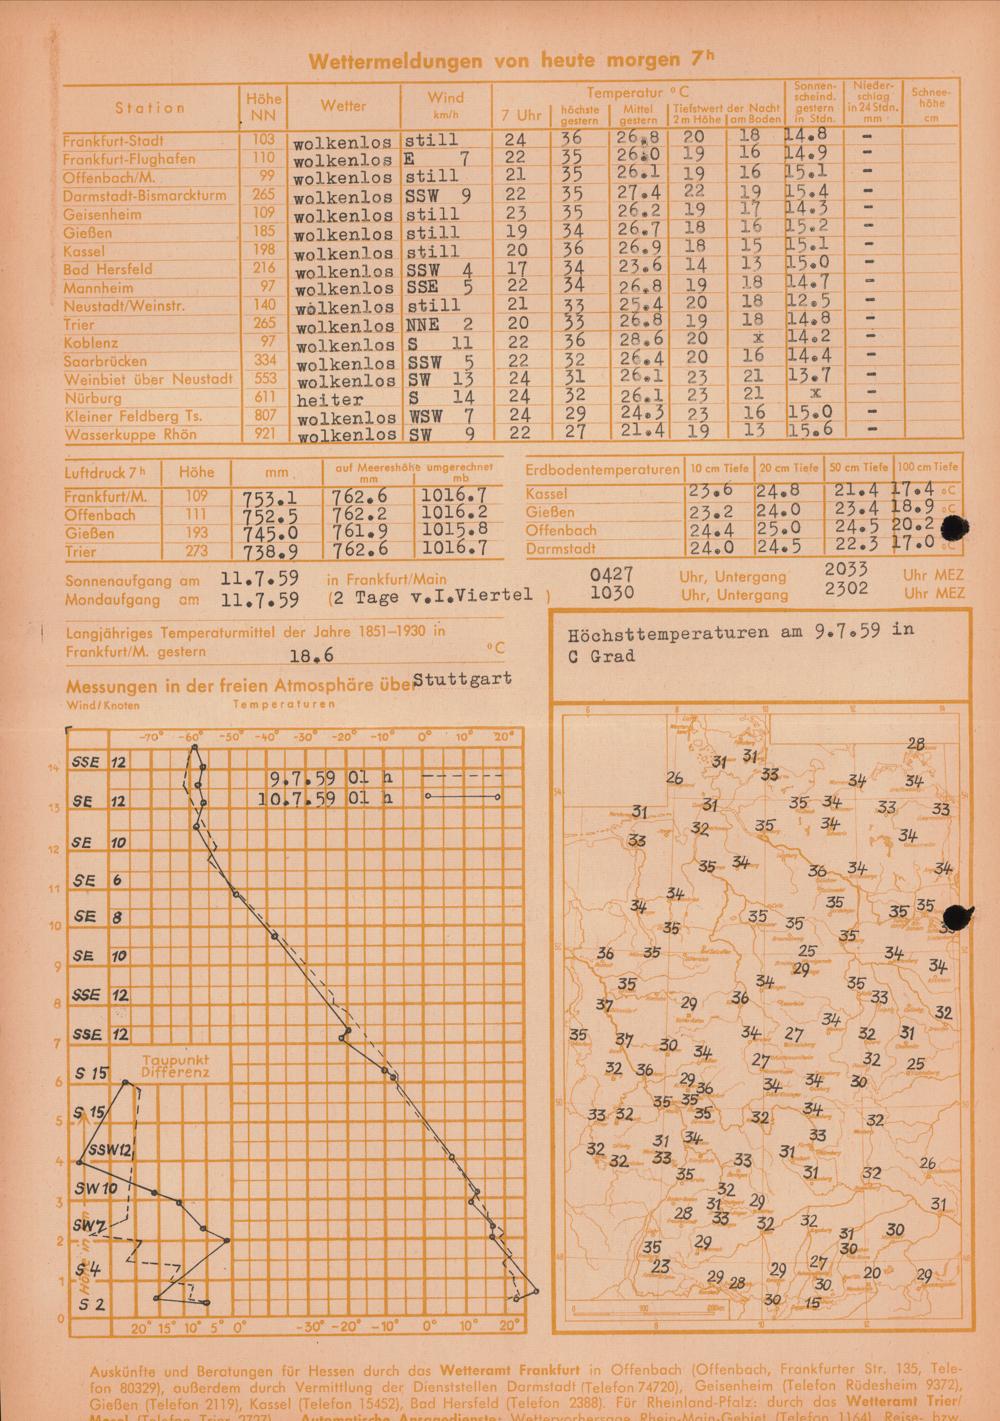 Wettermeldungen von heute morgen 7h
Station Höhe NN Wetter Wind km/h Temperatur °C Sonnenscheind. gestern in Stdn. Niederschlag in 24 Stdn. mm Schneehöhe cm
7 Uhr höchste gestern Mittel gestern Tiefstwert der Nacht 2 m Höhe am Boden
Frankfurt-Stadt 103 wolkenlos still 24 36 26.8 20 18 14.8 -
Frankfurt-Flughafen 110 wolkenlos E 7 22 35 26.0 19 16 14.9 -
Offenbach/M. 99 wolkenlos still 21 35 26.1 19 16 15.1 -
Darmstadt-Bismarckturm 265 wolkenlos SSW 9 22 35 27.4 22 19 15.4 -
Geisenheim 109 wolkenlos still 23 35 26.2 19 17 14.3 -
Gießen 185 wolkenlos still 19 34 26.7 18 16 15.2 -
Kassel 198 wolkenlos still 20 36 26.9 18 15 15.1 -
Bad Hersfeld 216 wolkenlos SSW 4 17 34 23.6 14 13 15.0 -
Mannheim 97 wolkenlos SSE 5 22 34 26.8 19 18 14.7 -
Neustadt/Weinstr. 140 wolkenlos still 21 33 25.4 20 18 12.5 -
Trier 265 wolkenlos NNE 2 20 33 26.8 19 18 14.8 -
Koblenz 97 wolkenlos S 11 22 36 28.6 20 x 14.2 -
Saarbrücken 334 wolkenlos SSW 5 22 32 26.4 20 16 14.4 -
Weinbiet über Neustadt 553 wolkenlos SW 13 24 31 26.1 23 21 13.7 -
Nürburg 611 heiter S 14 24 32 26.1 23 21 x -
Kleiner Feldberg Ts. 807 wolkenlos WSW 7 24 29 24.3 23 16 15.0 -
Wasserkuppe Rhön 921 wolkenlos SW 9 22 27 21.4 19 13 15.6 -
Luftdruck 7h Höhe mm auf Meereshöhe umgerechnet mm mb
Frankfurt/M. 109 753.1 762.6 1016.7
Offenbach 111 752.5 762.2 1016.2
Gießen 193 745.0 761.9 1015.8
Trier 273 738.9 762.6 1016.7
Erdbodentemperaturen 10 cm Tiefe 20 cm Tiefe 50 cm Tiefe 100 cm Tiefe
Kassel 23.6 24.8 21.4 17.4 °C
Gießen 23.2 24.0 23.4 18.9 °C
Offenbach 24.4 25.0 24.5 20.2
Darmstadt 24.0 24.5 22.3 17.0 °C
Sonnenaufgang am 11.7.59 in Frankfurt/Main 0427 Uhr, Untergang 2033 Uhr MEZ
Mondaufgang am 11.7.59 (2 Tage v.I.Viertel ) 1030 Uhr, Untergang 2302 Uhr MEZ
Langjähriges Temperaturmittel der Jahre 1851–1930 in
Frankfurt/M. gestern 18.6 °C
Messungen in der freien Atmosphäre über Stuttgart
Wind/Knoten Temperaturen
-70° -60° -50° -40° -30° -20° -10° 0° 10° 20°
9.7.59 01 h
10.7.59 01 h
SSE 12
14
SE 12
13
SE 10
12
SE 6
11
SE 8
10
SE 10
9
SSE 12
8
SSE 12
7
Taupunkt
Differenz
S 15
6
S 15
5
SSW 12
4
SW 10
3
SW 7
2
S 4
1
S 2
0
20° 15° 10° 5° 0° -30° -20° -10° 0° 10° 20°
Höchsttemperaturen am 9.7.59 in
C Grad
6 8 10 12 14
28
31 31
26 33 34 34
31 31 35 34 33 33
33 32 35 34 34
35 34 36 34 34
34 34 35 35 35
35 35 35 35
36 35 25 34
29 34
35 34 35
37 29 36 33 32
35 37 34 27 34 32 31
30 34
32 36 27 32 25
29 36 34 34 30
35 35
33 32 35 32 34 32
31 34 33
32 32 33 33 31 26
35 31 32
32
31 29 31
28 33 32 32 30
31
35 29 30
23 27
29 28 29 30 20 29
30 15
0 100 200km
Auskünfte und Beratungen für Hessen durch das Wetteramt Frankfurt in Offenbach (Offenbach, Frankfurter Str. 135, Tele-
fon 80329), außerdem durch Vermittlung der Dienststellen Darmstadt (Telefon 74720), Geisenheim (Telefon Rüdesheim 9372),
Gießen (Telefon 2119), Kassel (Telefon 15452), Bad Hersfeld (Telefon 2388). Für Rheinland-Pfalz: durch das Wetteramt Trier/
Mosel (Telefon Trier 2727). Automatische Ansagedienste: Wettervorhersage Rhein-Main-Gebiet (Telefon 1164)